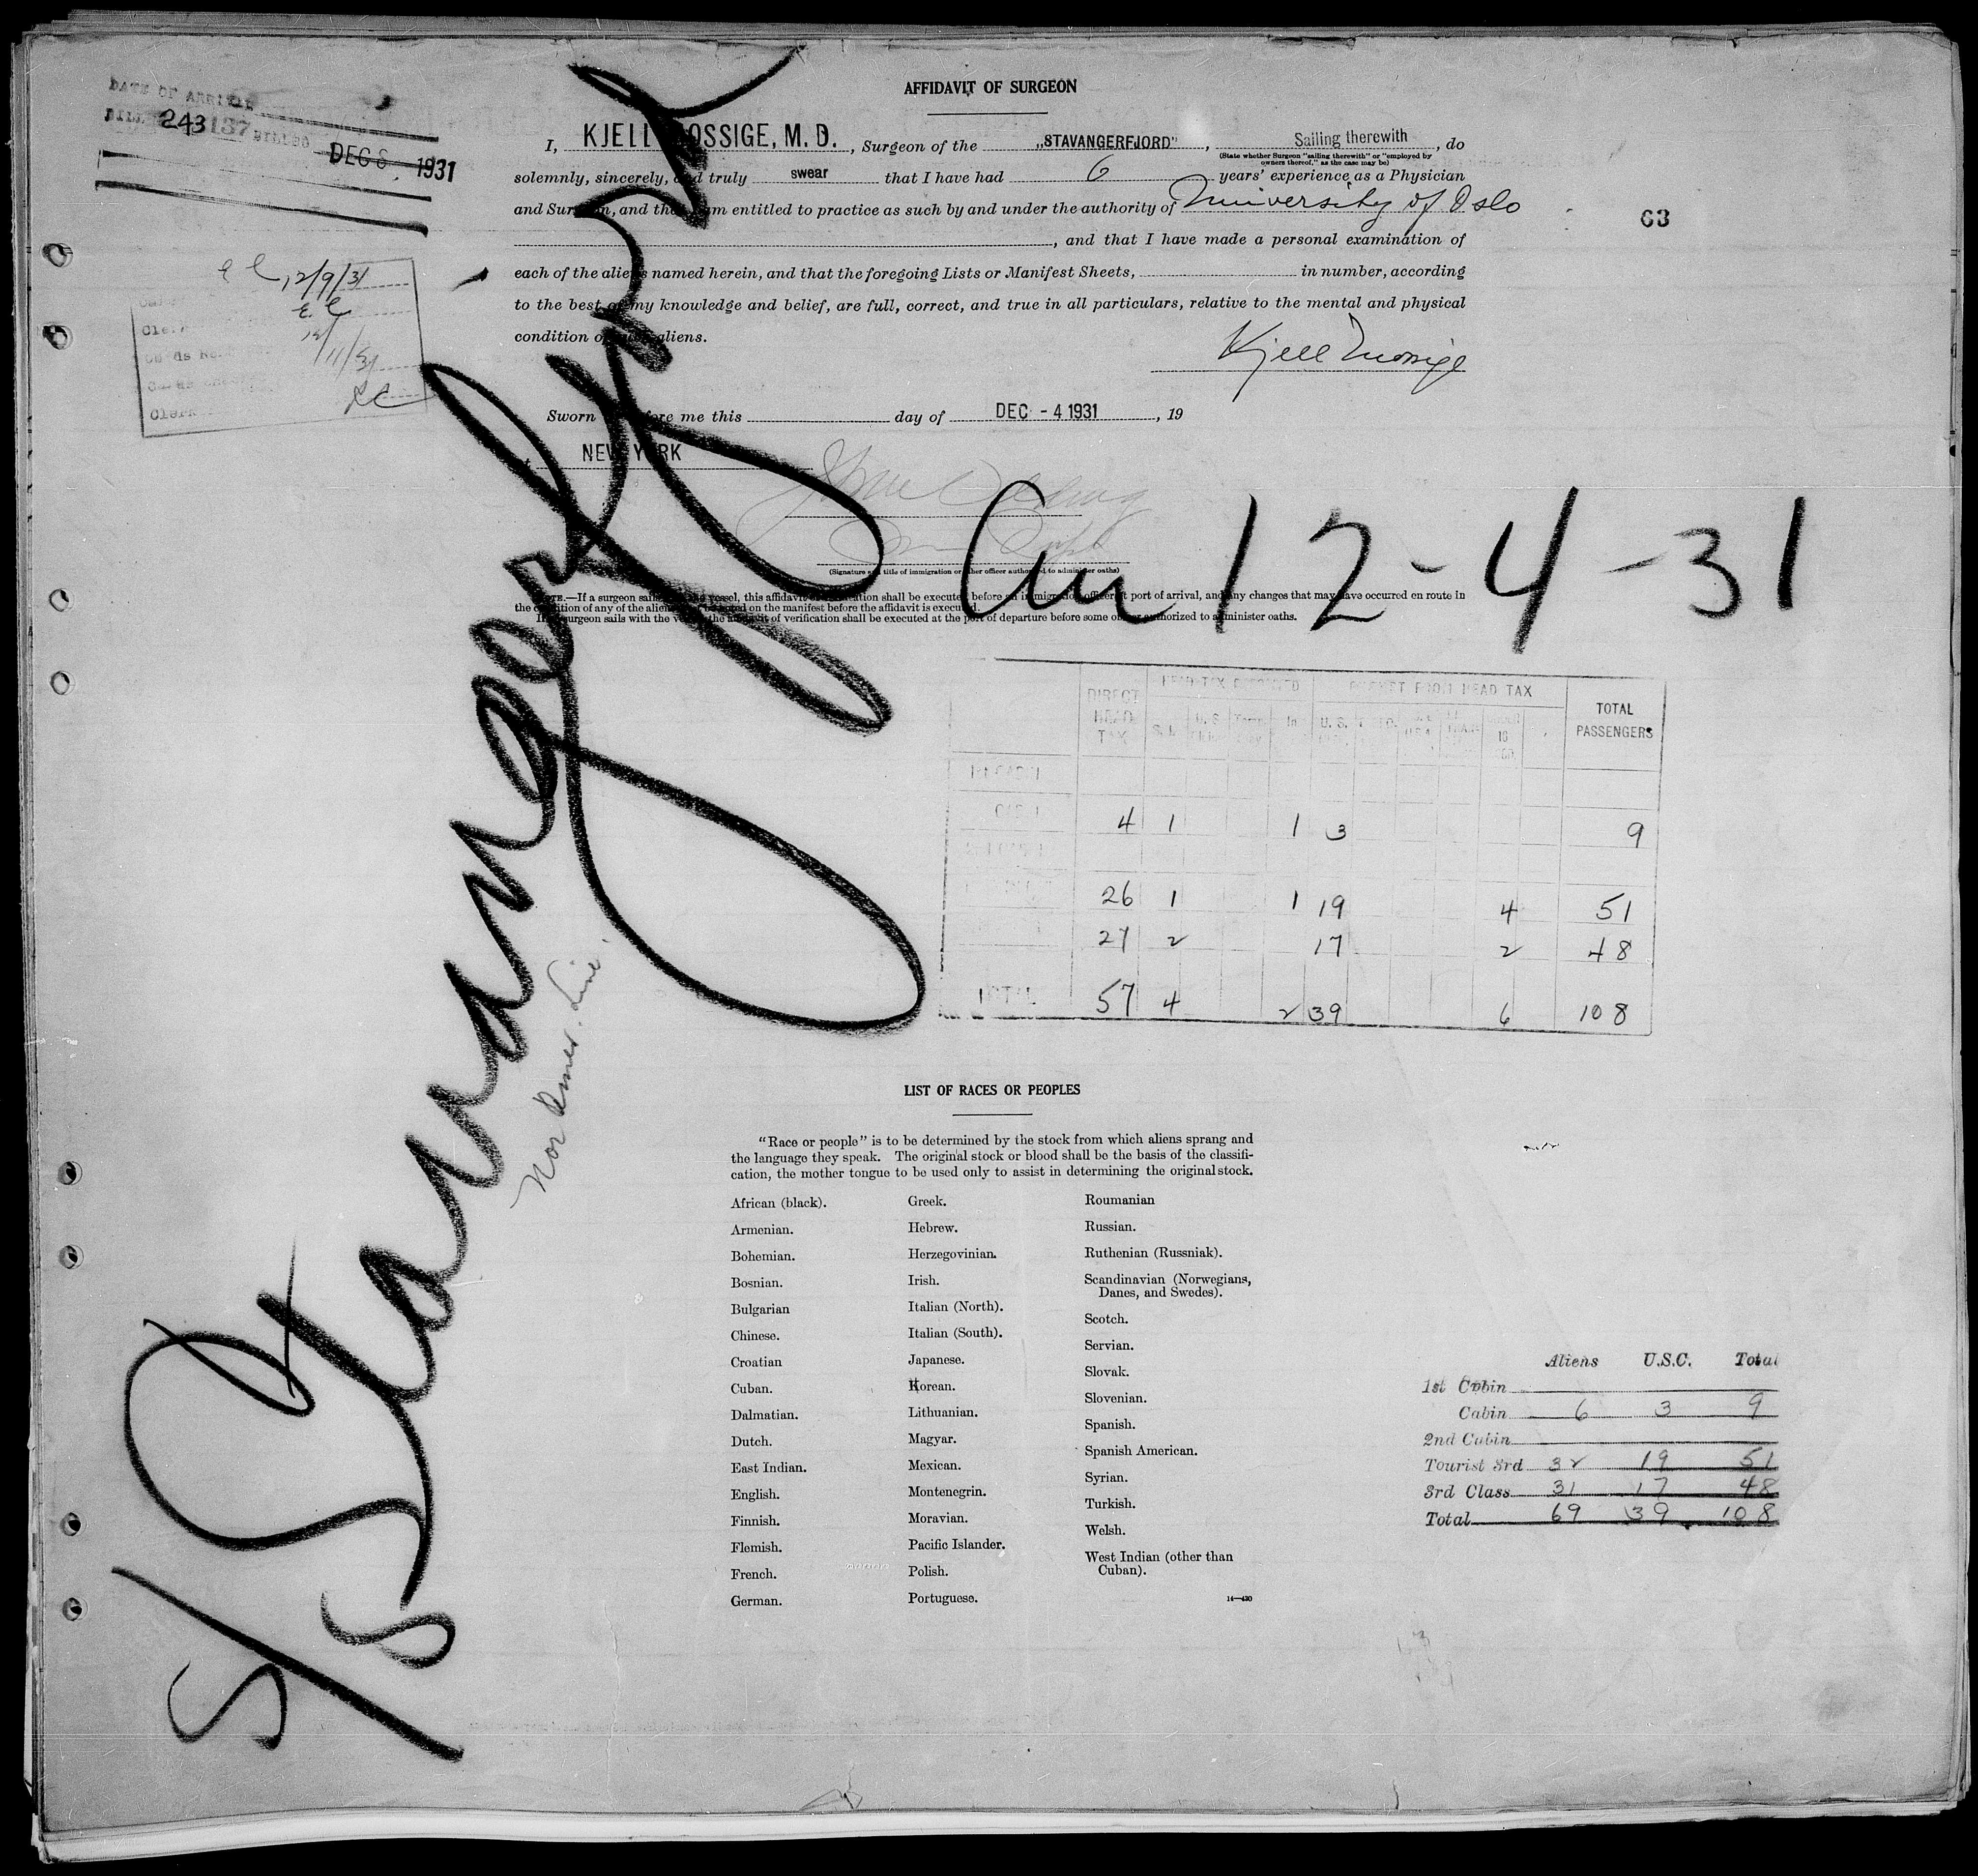 AFFIDAVIT OF SURGEON
DATE OF ARRIVAL
243 137 BILLED DEC 8 1931
I, KJELL OSSIGE, M. D. , Surgeon of the „STAVANGERFJORD" , Sailing therewith , do
(State whether Surgeon "sailing therewith" or "employed by
owners thereof," as the case may be)
solemnly, sincerely, and truly swear that I have had 6 years' experience as a Physician
and Surgeon, and that I am entitled to practice as such by and under the authority of University of Oslo
63
, and that I have made a personal examination of
each of the aliens named herein, and that the foregoing Lists or Manifest Sheets, in number, according
to the best of my knowledge and belief, are full, correct, and true in all particulars, relative to the mental and physical
condition of said aliens.
12/9/31
12/11/31
Clerk
Kjell
Sworn to before me this day of DEC - 4 1931 , 19
at NEW YORK
(Signature and title of immigration or other officer authorized to administer oaths)
NOTE.—If a surgeon sails with the vessel, this affidavit of verification shall be executed before an immigration officer at port of arrival, and any changes that may have occurred en route in
the condition of any of the aliens shall be noted on the manifest before the affidavit is executed.
If no surgeon sails with the vessel, the affidavit of verification shall be executed at the port of departure before some officer authorized to administer oaths.
S/S Stavangerfjord
Arr 12-4-31
Nor Amer. Line.
DIRECT HEAD TAX
EXEMPT FROM HEAD TAX
TOTAL PASSENGERS
4 1 1 3 9
26 1 1 19 4 51
27 2 17 2 48
TOTAL 57 4 2 39 6 108
LIST OF RACES OR PEOPLES
"Race or people" is to be determined by the stock from which aliens sprang and
the language they speak. The original stock or blood shall be the basis of the classifi-
cation, the mother tongue to be used only to assist in determining the original stock.
African (black).
Armenian.
Bohemian.
Bosnian.
Bulgarian
Chinese.
Croatian
Cuban.
Dalmatian.
Dutch.
East Indian.
English.
Finnish.
Flemish.
French.
German.
Greek.
Hebrew.
Herzegovinian.
Irish.
Italian (North).
Italian (South).
Japanese.
Korean.
Lithuanian.
Magyar.
Mexican.
Montenegrin.
Moravian.
Pacific Islander.
Polish.
Portuguese.
Roumanian
Russian.
Ruthenian (Russniak).
Scandinavian (Norwegians,
Danes, and Swedes).
Scotch.
Servian.
Slovak.
Slovenian.
Spanish.
Spanish American.
Syrian.
Turkish.
Welsh.
West Indian (other than
Cuban).
14—430
Aliens U.S.C. Total
1st Cabin
Cabin 6 3 9
2nd Cabin
Tourist 3rd 32 19 51
3rd Class 31 17 48
Total 69 39 108